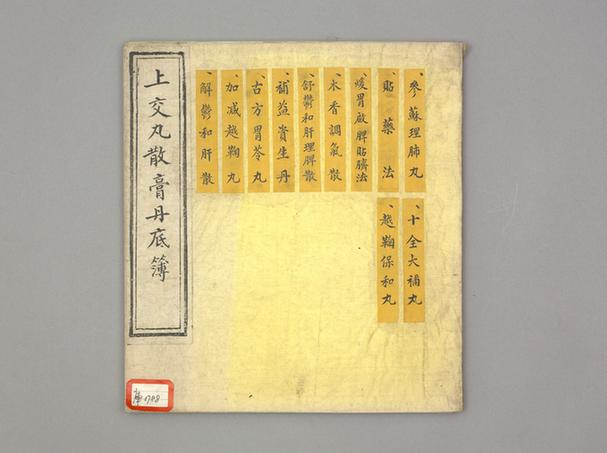 上交丸散膏丹底簿
、參蘇理肺丸
、貼藥法
、煖胃啟脾貼臍法
、木香調氣散
、舒鬱和肝理脾散
、補益資生丹
、古方胃苓丸
、加减越鞠丸
、解鬱和肝散
、十全大補丸
、越鞠保和丸